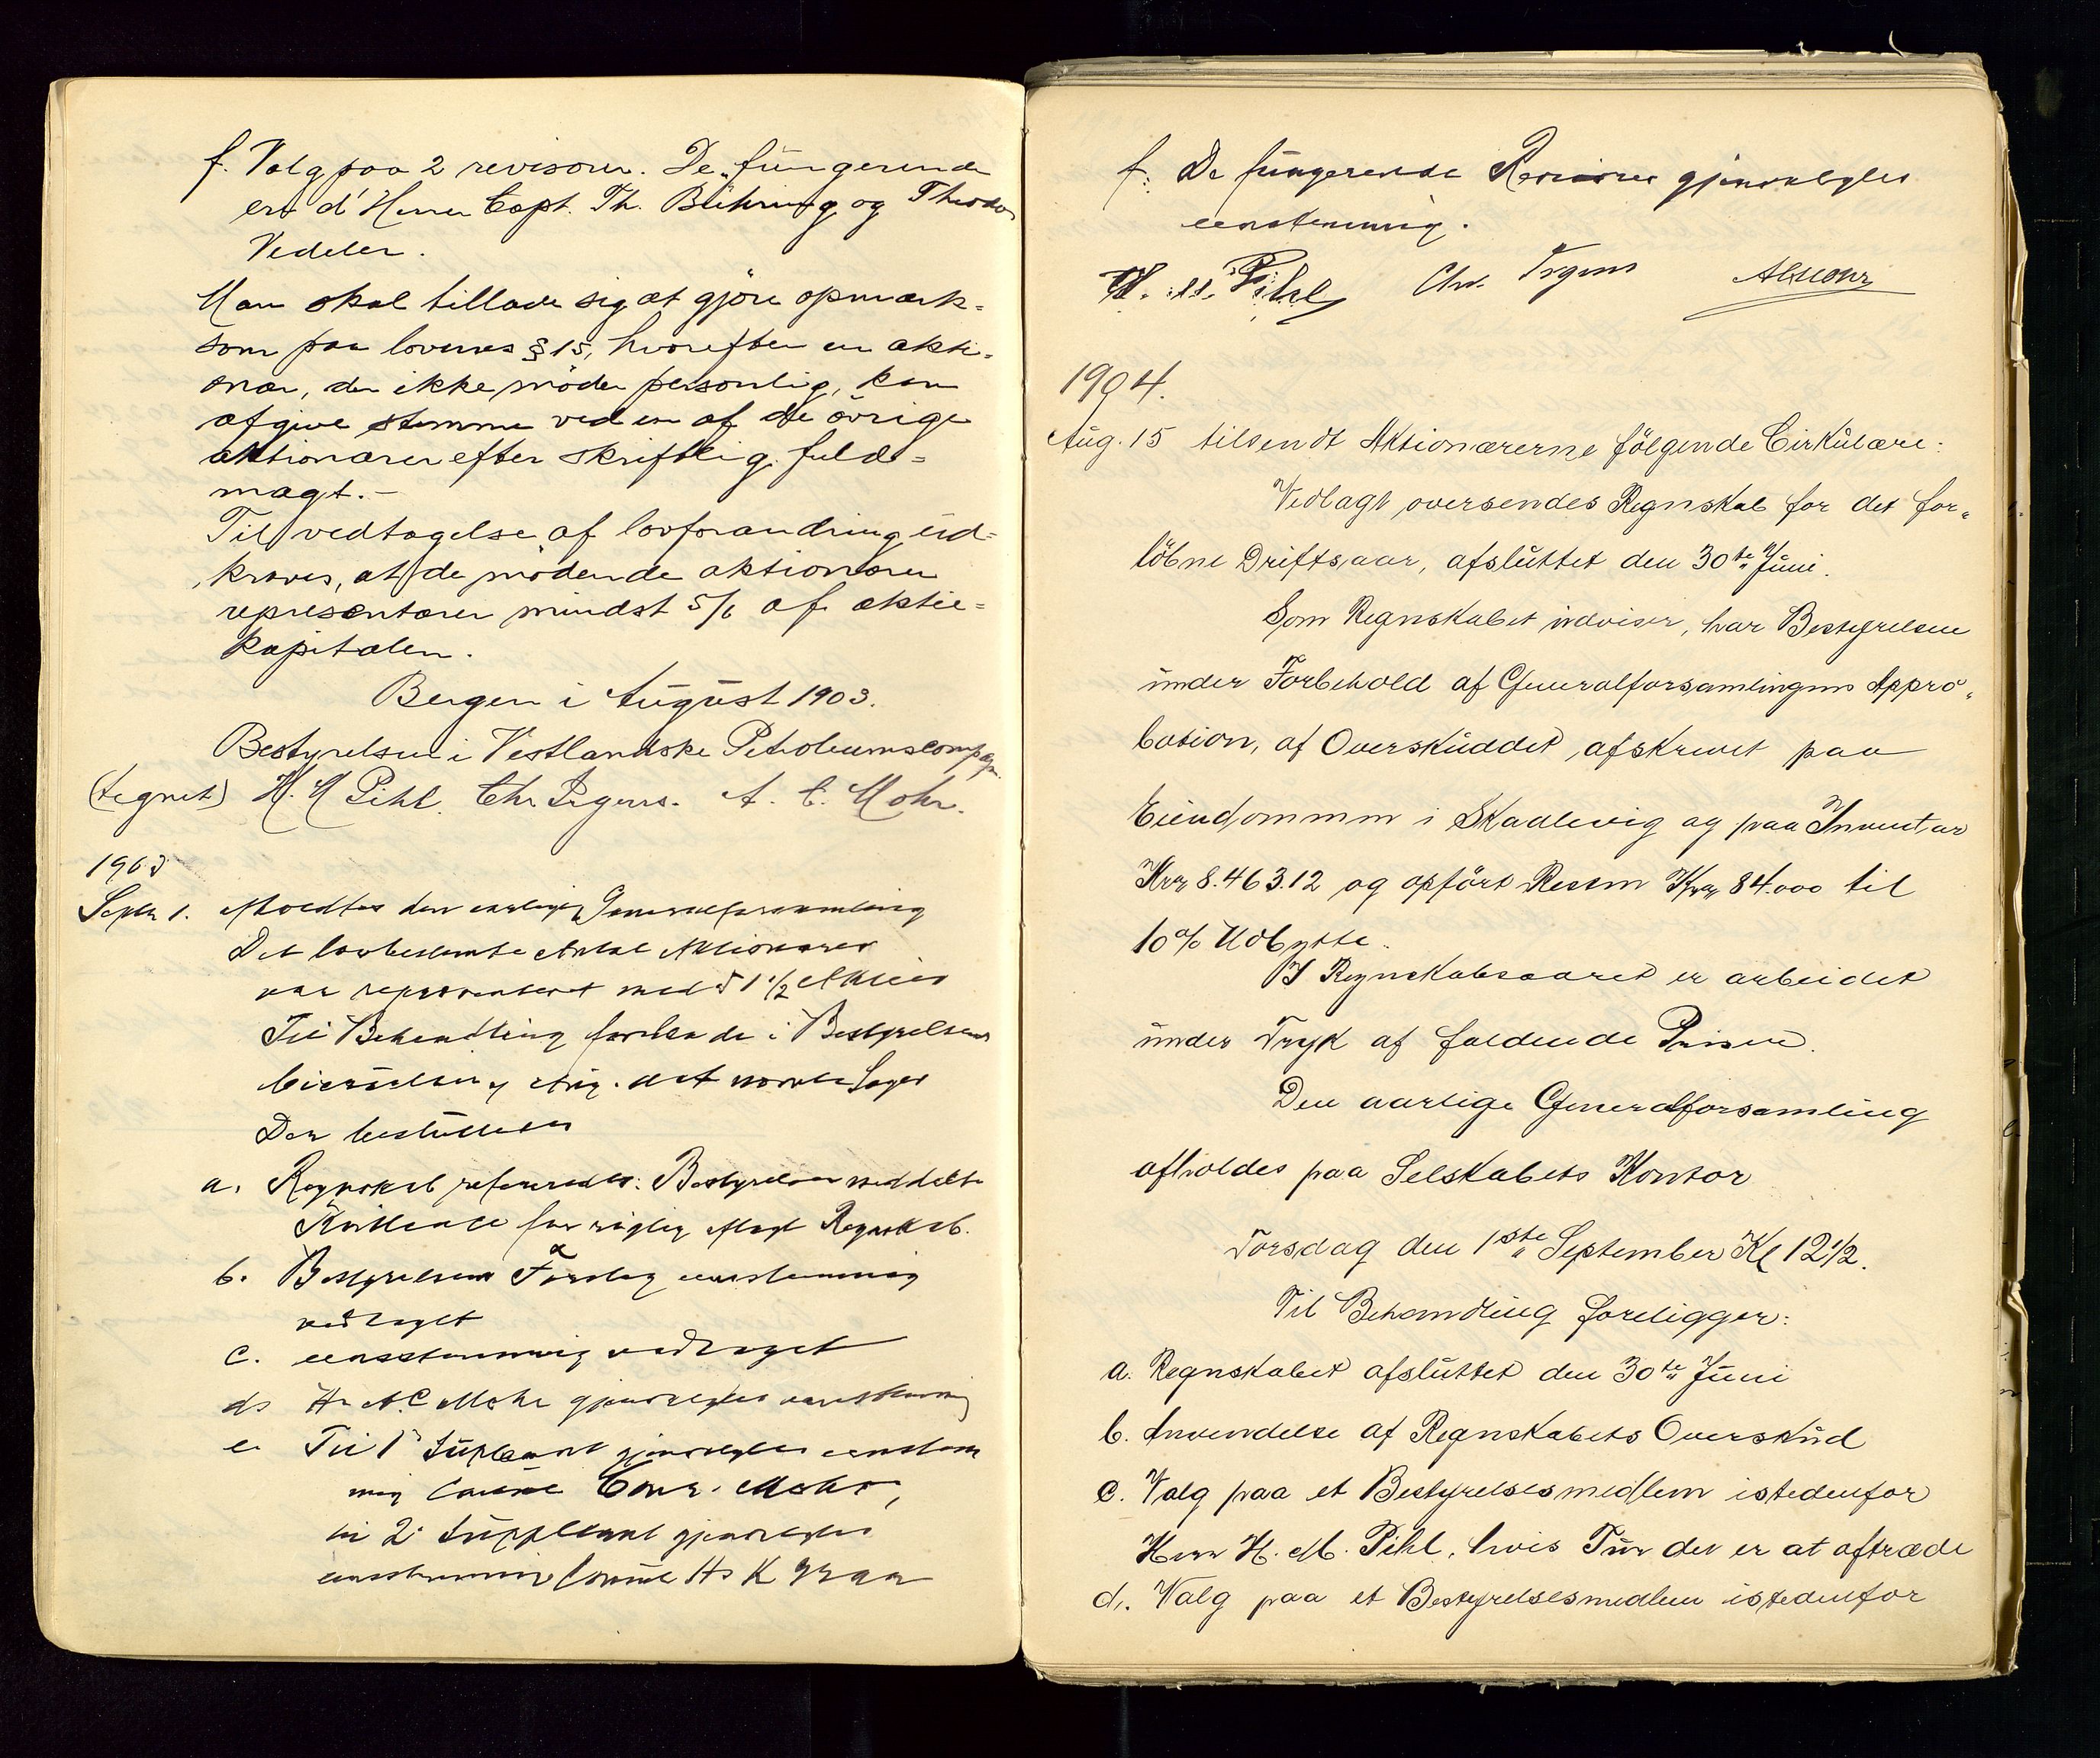 f. Valg paa 2 revisorer. De fungerende
ere d'Herrer Capt. Th. Bühring og Theodor
Vedeler.
Man skal tillade sig at gjöre opmærk=
som paa lovenes § 15, hvorefter en aktio-
nær, der ikke möder personlig, kan
afgive stemme ved en af de övrige
aktionærer efter skriftlig fuld=
magt.-
Til vedtagelse af lovforandring ud=
kræves, at de mödende aktionærer
repræsenterer mindst 5/6 af aktie=
kapitalen.
Bergen i August 1903.
Bestyrelsen i Vestlandske Petroleumscompagni.
(tegnet) H. M Pihl. Chr. Irgens. A. C. Mohr.
1903
Septr 1. Afholdtes den aarlige Generalforsamling
Det lovbestemte Antal Aktionærer
var repræsenteret med 51 1/2 Aktier
Til Behandling forelaa de i Bestyrelsens
Cirkulære af Aug. det nævnte Sager
Der besluttedes
a. Regnskab refereredes. Bestyrelsen meddelte
Kvittance for rigtig aflagt Regnskab.
b. Bestyrelsens Forslag eenstemmig
vedtaget
c. eensstemmig vedtaget
d. Hr A. C Mohr gjenvalgtes eenstemmig
e. Til 1ste Suppleant gjenvalgtes eenstem
mig Consul Conr. Mohr,
til 2. Suppleant gjenvalgtes
eensstemmig Consul H. K Graa
f. De fungerende Revisorer gjenvalgtes
eenstemmig.
H. M. Pihl Chr. Irgens ACMohr
1904.
Aug. 15 tilsendt Aktionærerne fölgende Cirkulære:
Vedlagt oversendes Regnskab for det for„
löbne Driftsaar, afsluttet den 30te Juni.
Som Regnskabet udviser, har Bestyrelsen
under Forbehold af Generalforsamlingens Appro„
bation, af Overskuddet afskrevet paa
Eiendommen i Skaalevig og paa Inventar
Kr 8.463.12 og opfört Resten Kr 84.000 til
10% Udbytte.
I Regnskabsaaret er arbeidet
under Tryk af faldende Priser.
Den aarlige Generalforsamling
afholdes paa Selskabets Kontor
Torsdag den 1ste September Kl 12 1/2.
Til Behandling foreligger:
a. Regnskabet afsluttet den 30te Juni
b. Anvendelse af Regnskabets Overskud
c. Valg paa et Bestyrelsesmedlem istedenfor
Herr H. M. Pihl, hvis Tur det er at aftræde
d. Valg paa et Bestyrelsesmedlem istedenfor